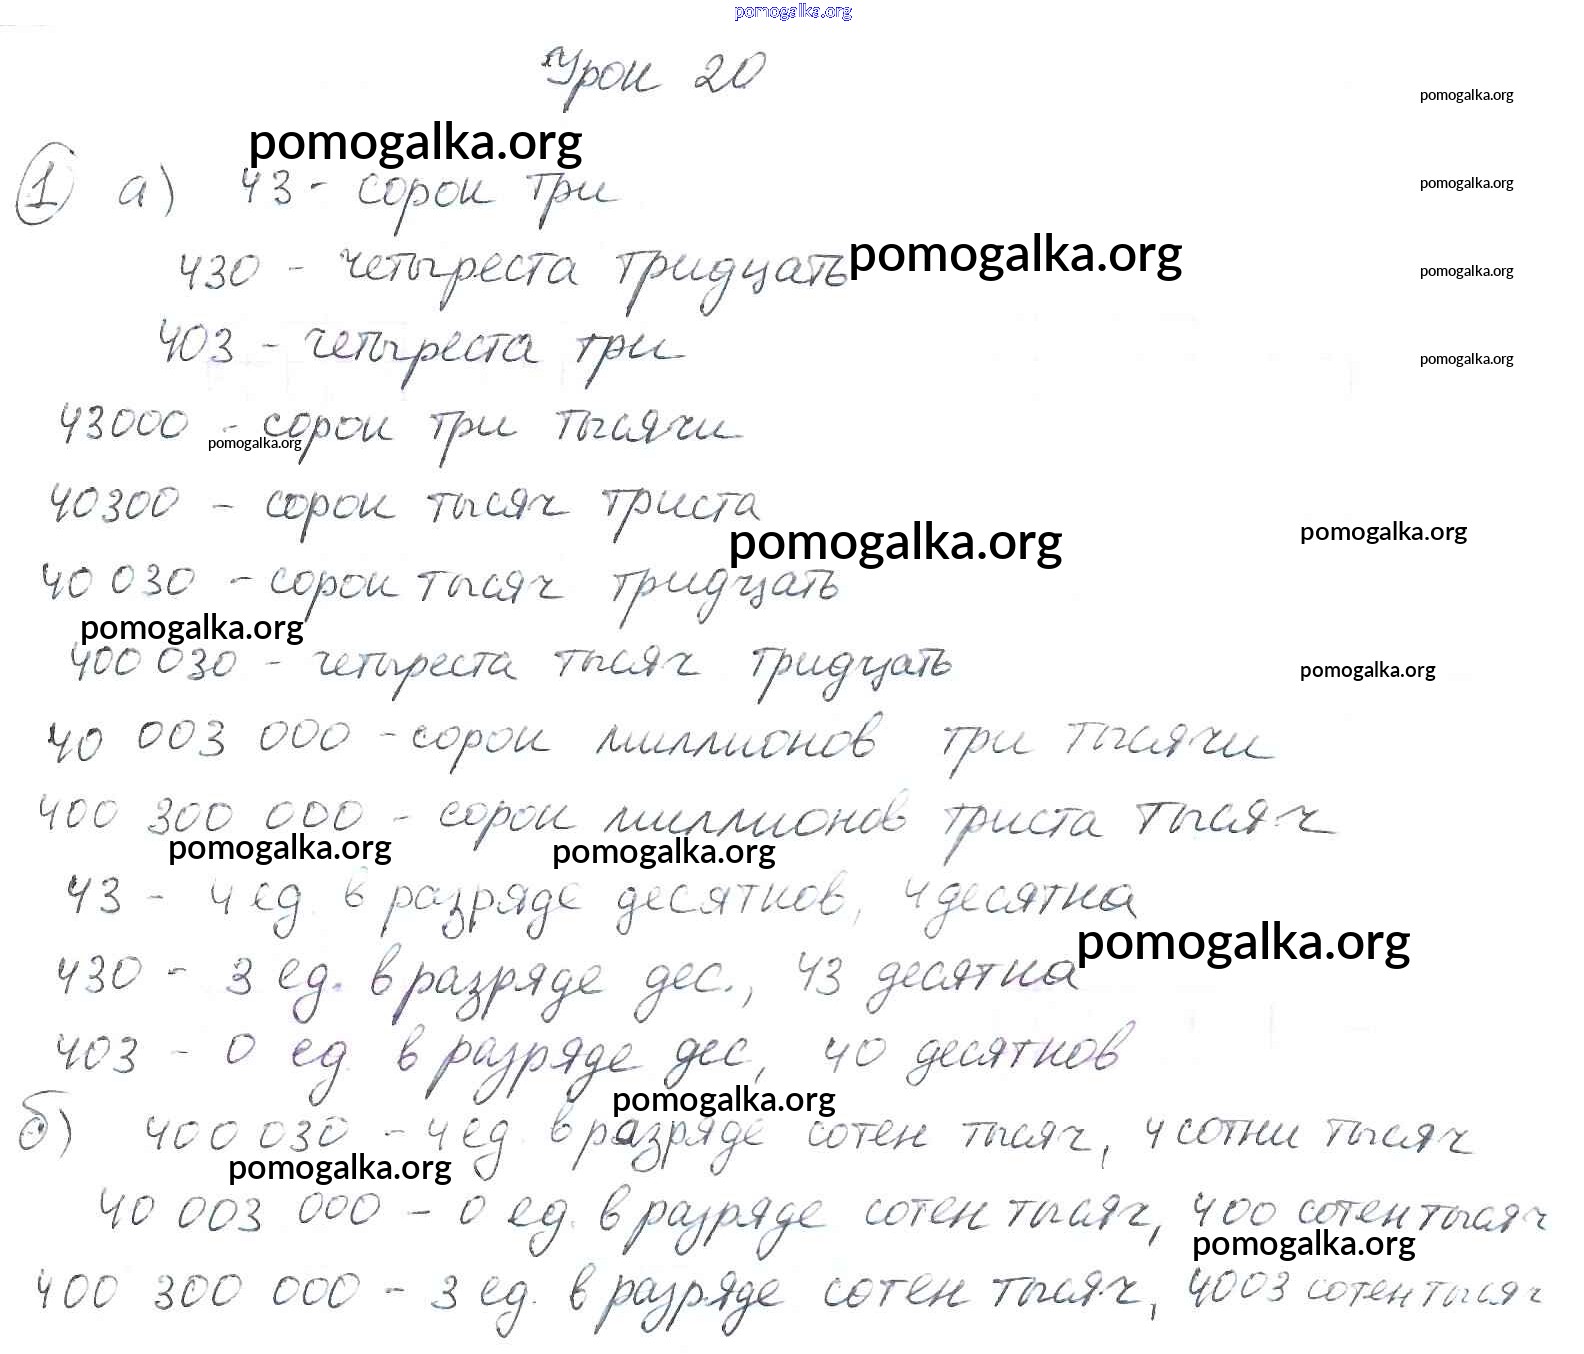 pomogalka.org
Урок 20
pomogalka.org
pomogalka.org
1 а) 43 - сорок три
pomogalka.org
430 - четыреста тридцать pomogalka.org
pomogalka.org
403 - четыреста три
pomogalka.org
43000 - сорок три тысячи
pomogalka.org
40300 - сорок тысяч триста
pomogalka.org
pomogalka.org
40 030 - сорок тысяч тридцать
pomogalka.org
400 030 - четыреста тысяч тридцать
pomogalka.org
40 003 000 - сорок миллионов три тысячи
400 300 000 - сорок миллионов триста тысяч
pomogalka.org pomogalka.org
43 - 4 ед. в разряде десятков, 4 десятка
pomogalka.org
430 - 3 ед. в разряде дес., 43 десятка
403 - 0 ед. в разряде дес, 40 десятков
pomogalka.org
б) 400 030 - 4 ед. в разряде сотен тысяч, 4 сотни тысяч
pomogalka.org
40 003 000 - 0 ед. в разряде сотен тысяч, 400 сотен тысяч
pomogalka.org
400 300 000 - 3 ед. в разряде сотен тысяч, 4003 сотен тысяч